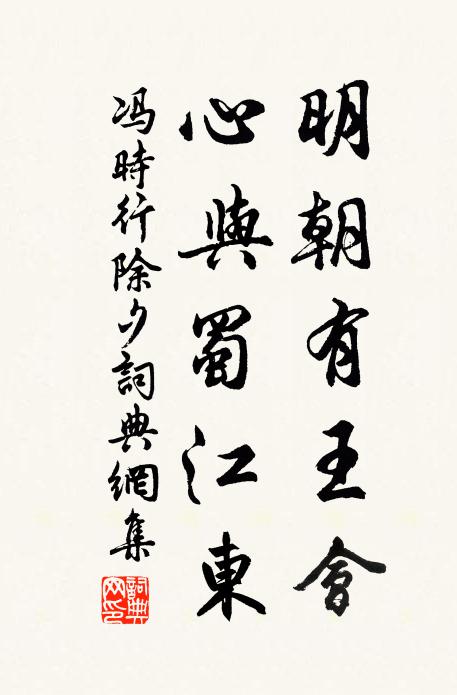 明朝有王會
心與蜀江東
冯時行除夕詞典網集
詞典網印